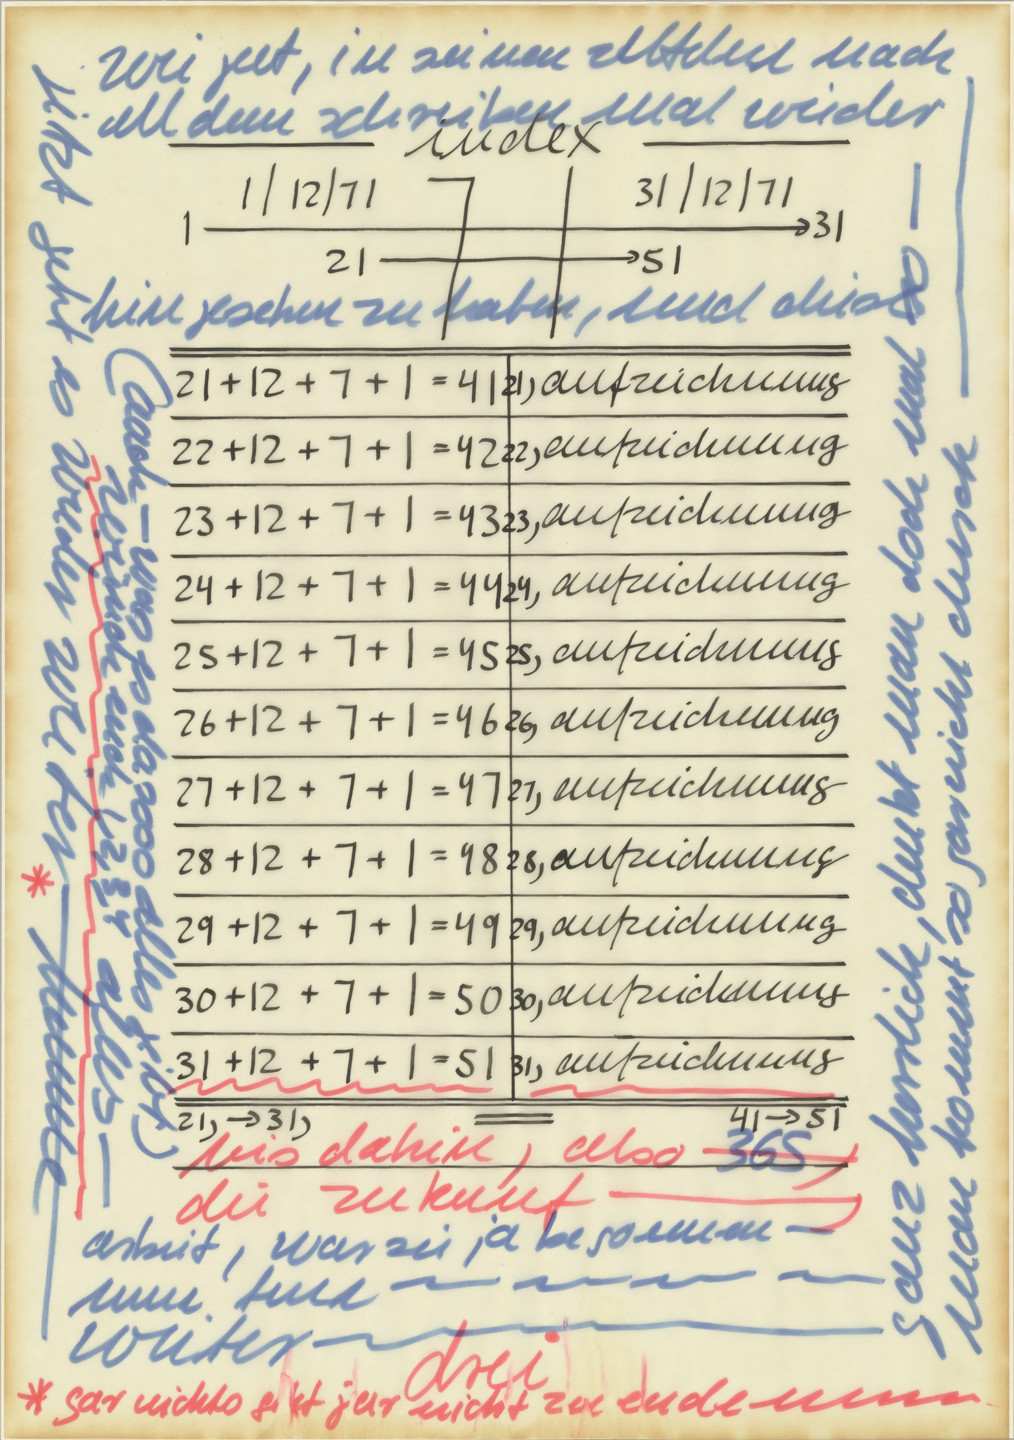 wie gut, in seinen zettelln nach
all dem schreiben mal wieder
index
1/12/71 31/12/71
1 → 31
21 → 51
hin gesehen zu haben, und diese
21+12+7+1=41 21, aufzeichnung
22+12+7+1=42 22, aufzeichnung
23+12+7+1=43 23, aufzeichnung
24+12+7+1=44 24, aufzeichnung
25+12+7+1=45 25, aufzeichnung
26+12+7+1=46 26, aufzeichnung
27+12+7+1=47 27, aufzeichnung
28+12+7+1=48 28, aufzeichnung
29+12+7+1=49 29, aufzeichnung
30+12+7+1=50 30, aufzeichnung
31+12+7+1=51 31, aufzeichnung
21,→31, 41→51
bis dahin, also 365
die zukunft
arbeit, war sie ja begonnen –
nun, tun
weiter
drei
* gar nichts gibt gar nicht zu ende
jetzt geht es wieder weiter
* heute
(ach – was es da sooo alles gibt)
alles –
ganz herrlich, denkt man doch mal so –
man kommt so gar nicht durch